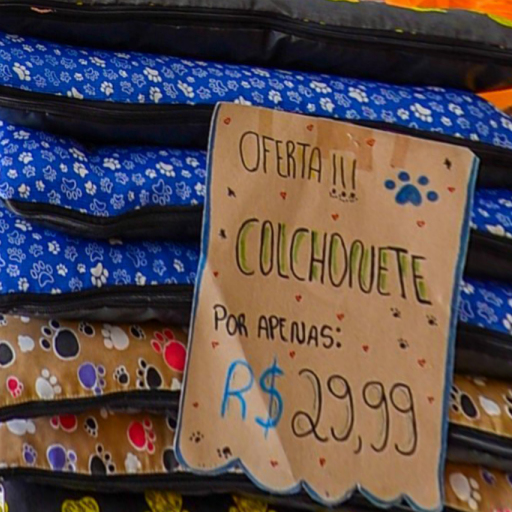 OFERTA !!!
COLCHONETE
POR APENAS:
R$ 29,99